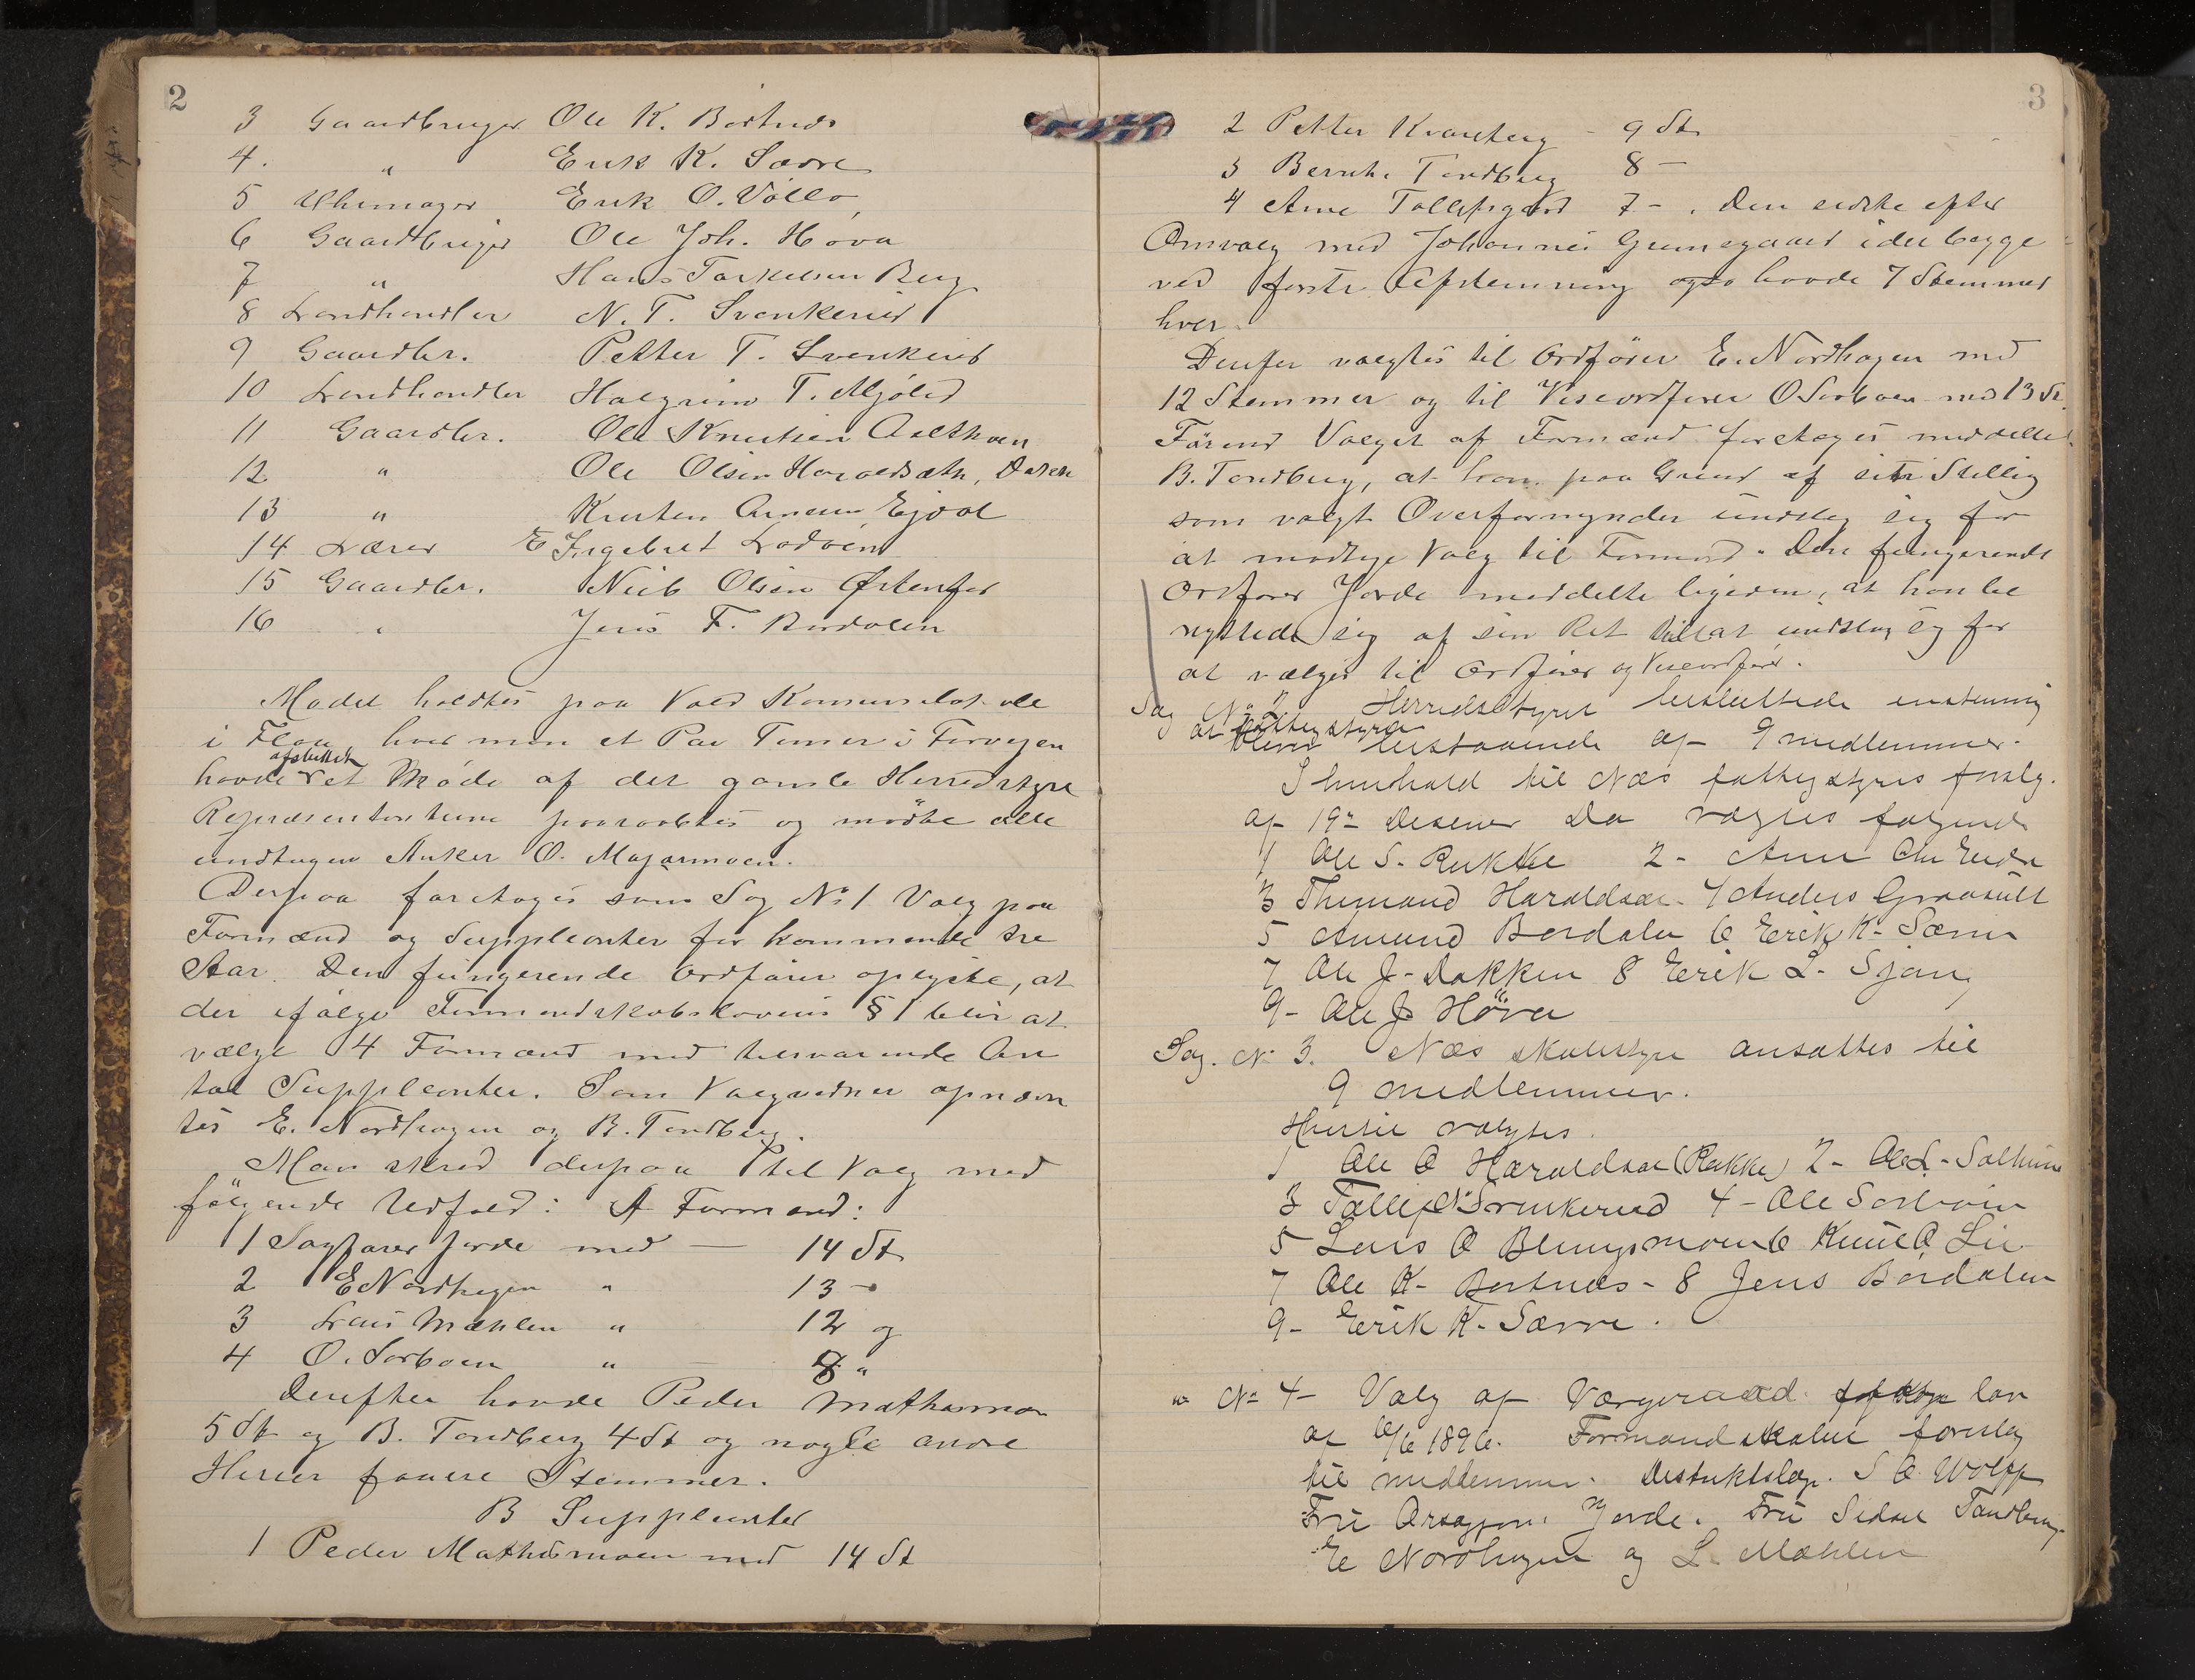 2
3 Gaardbruger Ole K. Bortnæs
4. " Erik K. Sævre
5 Uhrmager Erik O. Vollo
6 Gaardbruger Ole Joh. Hova
7 " Hans Torkelsen Berg
8 Landhandler N. T. Svenkerud
9 Gaardbr. Petter T. Svenkerud
10 Landhandler Halgrim T. Mjöled
11 Gaardbr. Ole Knutsen
12 " Ole Olsen Haraldseth,
13 " Knuten Arnesen
14 Lærer Ingebret
15 Gaardbr. Niels Olsen
16 " Jens F. Bordalen
Mødet holdtes paa Vold Komunelokale
i Flaa, hvor man et Par Timer i Forvejen
havde afsluttet et Møde af det gamle Herredstyre
Repræsentanterne paaraabtes og mödte alle
undtagen Anker O.
Derpaa foretoges som Sag No 1 Valg paa
Formænd og Suppleanter for kommende tre
Aar. Den fungerende Ordförer oplyste, at
der ifölge Formandskabslovens § 1 blir at
vælge 4 Formænd med tilsvarende An
tal Suppleanter. Som Valgvidner opnævn
tes E. Nordhagen og B. Tandberg.
Man skred derpaa til Valg med
fölgende Udfald: A Formænd:
1 Sagförer Jorde med — 14 St
2 E Nordhagen " 13 -
3 Lars Mæhlen " 12 og
4 O. Sorboen " 8 "
Derefter havde Peder Mathismoen
5 St og B. Tandberg 4 St og nogle andre
Herrer færre Stemmer.
B Suppleanter
1 Peder Mathismoen med 14 St
3
2 Petter Kvarberg - 9 St
3 Bernh. Tandberg 8 -
4 Arne Tollefsgard 7 - . Den sidste efter
Omvalg med Johannes Grimsgaard idet begge
ved förste Afstemning ogsaa havde 7 Stemmer
hver.
Derefter valgtes til Ordförer E. Nordhagen med
12 Stemmer og til Viseordförer O Sorboen med 13 St.
Förend Valget af Formænd foretoges meddelte
B. Tandberg, at han paa Grund af sin Stilling
som valgt Overformynder undslog sig for
at modtage Valg til Formand. Den fungerende
Ordförer Jorde meddelte ligesom, at han be
nyttede sig af sin Ret til at undslaa sig for
at vælges til Ordförer og Viseordförer.
Sag No 2 Herredstyret besluttede enstemmig
at Fattigstyret bliver bestaaende af 9 medlemmer.
I henhold til Næs fattigstyres forslg.
af 19de Desember Da valgtes følgende
1 Ole S. Rukke 2 -
3 Thormund Haraldset 4 Anders
5 Amund Bordalen 6 Erik K. Sævre
7 Ole J. Dokken 8 Erik L. Sjon
9 - Ole J. Höva
Sag. No 3. Næs skolestyre ansattes til
9 medlemmer.
Hertil valgtes.
1 Ole O Haraldset (Rukke) 2 - Ole L - Solheim
3 Tollef N Svenkerud 4 - Ole Sorboen
5 Lars O 6 Knut O Lie
7 Ole K - Bortnæs - 8 Jens Bordalen
9 - Erik K - Sævre.
" No 4 - Valg af Værgeraad lov
af 6/6 1896. Formandskabet foreslog
til medlemmer. Distriktslæge S O Wolff
Fru Jorde. Fru Sidsel Tandberg
E Nordhagen og L. Mæhlen